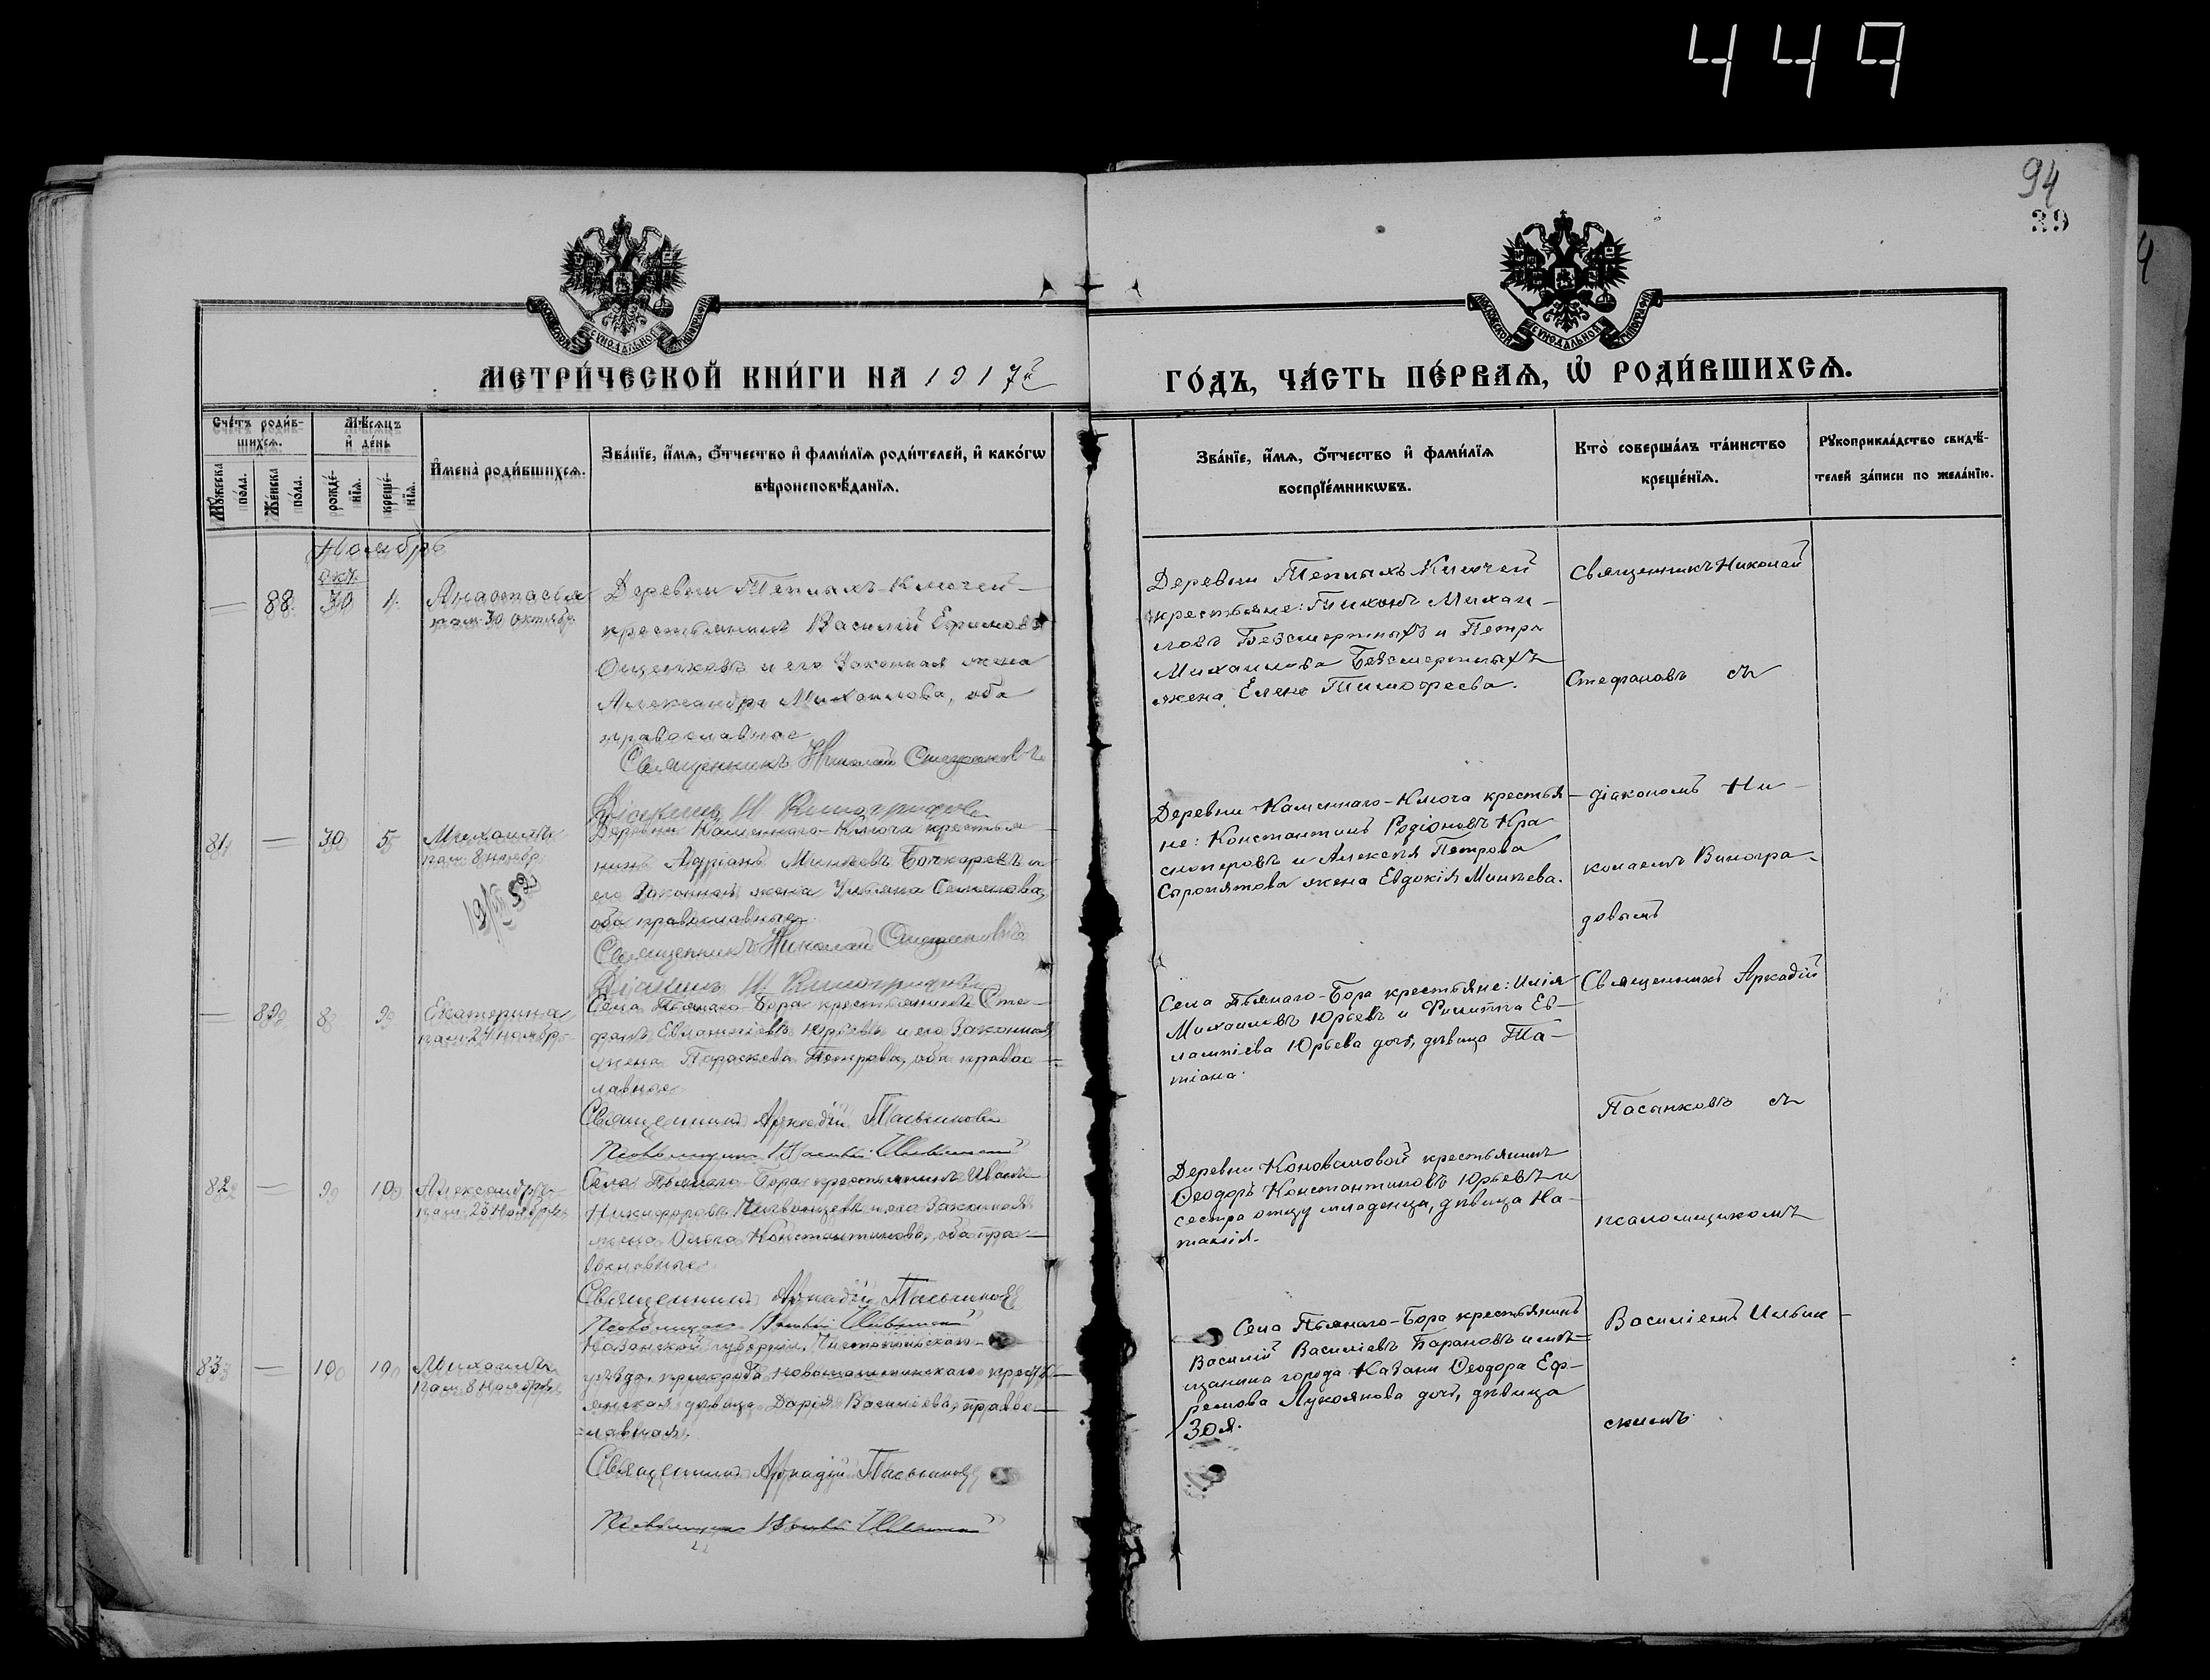 449
94
39
МЕТРИ́ЧЕСКОЙ КНИ́ГИ НА 1917й
ГО́ДЪ, ЧА́СТЬ ПЕ́РВАѦ, Ѡ҆ РОДИ́ВШИХСѦ.
Сче́тъ роди́в-
шихсѧ.
Мѣ́сѧцъ
и҆ де́нь
Мꙋ́жеска
по́ла.
Же́нска
по́ла.
рожде́-
нїѧ.
креще́-
нїѧ.
И҆мена̀ роди́вшихсѧ.
Зва́нїе, и҆́мѧ, ѻ҆́тчество и҆ фами́лїѧ роди́телей, и҆ како́гѡ
вѣроисповѣ́данїѧ.
Зва́нїе, и҆́мѧ, ѻ҆́тчество и҆ фами́лїѧ
воспрїе́мникѡвъ.
Кто̀ соверша́лъ та́инство
креще́нїѧ.
Рꙋкоприкла́дство свидѣ́-
телей за́писи по жела́нїю.
Ноябрь
окт.
— 88. 30 4. Анастасія
пам. 30 октябр.
Деревни Теплыхъ-Ключей
крестьянинъ Василій Ефимовъ
и его законная жена
Александра Михаилова, оба
православные
Священникъ Николай Стефановъ
Діаконъ Н. Виноградовъ
Деревни Теплыхъ Ключей
крестьяне: Тихонъ Михаи-
ловъ Безсмертныхъ и Петра
Михаилова Безсмертныхъ
жена Елена Тимофеева.
Священникъ Николай
Стефановъ съ
81 — 30 5 Михаилъ
пам. 8 ноябр.
52
Деревни Каменнаго-Ключа крестья-
нинъ Адріанъ Минѣевъ Бочкаревъ и
его законная жена Ульяна Семенова,
оба православные.
Священникъ Николай Стефановъ
Діаконъ Н. Виноградовъ
Деревни Каменнаго-Ключа крестья-
не: Константинъ Родіоновъ Кра
сноперовъ и Алексѣя Петрова
жена Евдокія Минѣева.
діакономъ Ни-
колаемъ Виногра-
довымъ
— 89 8 9 Екатерина
пам. 24 ноябр.
Села Пьянаго-Бора крестьянинъ Сте-
фанъ Евлампіевъ Юрьевъ и его законная
жена Параскева Петрова, оба правос-
лавные
Священникъ Аркадій Пасынковъ
Псаломщикъ Василій Ильинскій
Села Пьянаго-Бора крестьяне: Илія
Михаиловъ Юрьевъ и Филиппа Ев-
лампіева Юрьева дочь, дѣвица Та-
тіана.
Священникъ Аркадій
Пасынковъ съ
82 — 9 10 Александръ
пам. 23 Ноября
Села Пьянаго-Бора крестьянинъ Иванъ
Никифоровъ и его законная
жена Ольга Константинова, оба пра-
вославные
Священникъ Аркадій Пасынковъ
Псаломщикъ Василій Ильинскій
Деревни Коноваловой крестьянинъ
Ѳеодоръ Константиновъ Юрьевъ и
сестра отцу младенца, дѣвица На-
талія.
псаломщикомъ
83 — 10 10 Михаилъ
пам. 8 Ноября
Казанской губерніи, Чистопольскаго
уѣзда, пригорода Новошешминскаго кресть-
янская дѣвица Дарія Василіева, правос-
лавная.
Священникъ Аркадій Пасынковъ
Псаломщикъ Василій Ильинскій
Села Пьянаго-Бора крестьянинъ
Василій Василіевъ Барановъ и мѣ-
щанина города Казани Ѳеодора Еф-
ремова Лукоянова дочь, дѣвица
Зоя.
Василіемъ Ильин-
скимъ